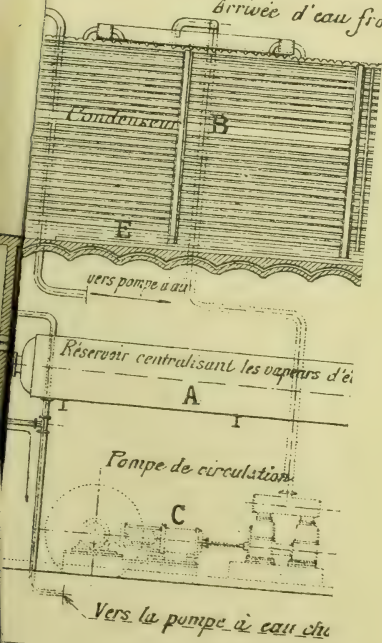 Arrivée d'eau fro
Condenseur B
E
vers pompe à au
Réservoir centralisant les vapeurs d'é
A
I I
Pompe de circulation
C
Vers la pompe à eau cha